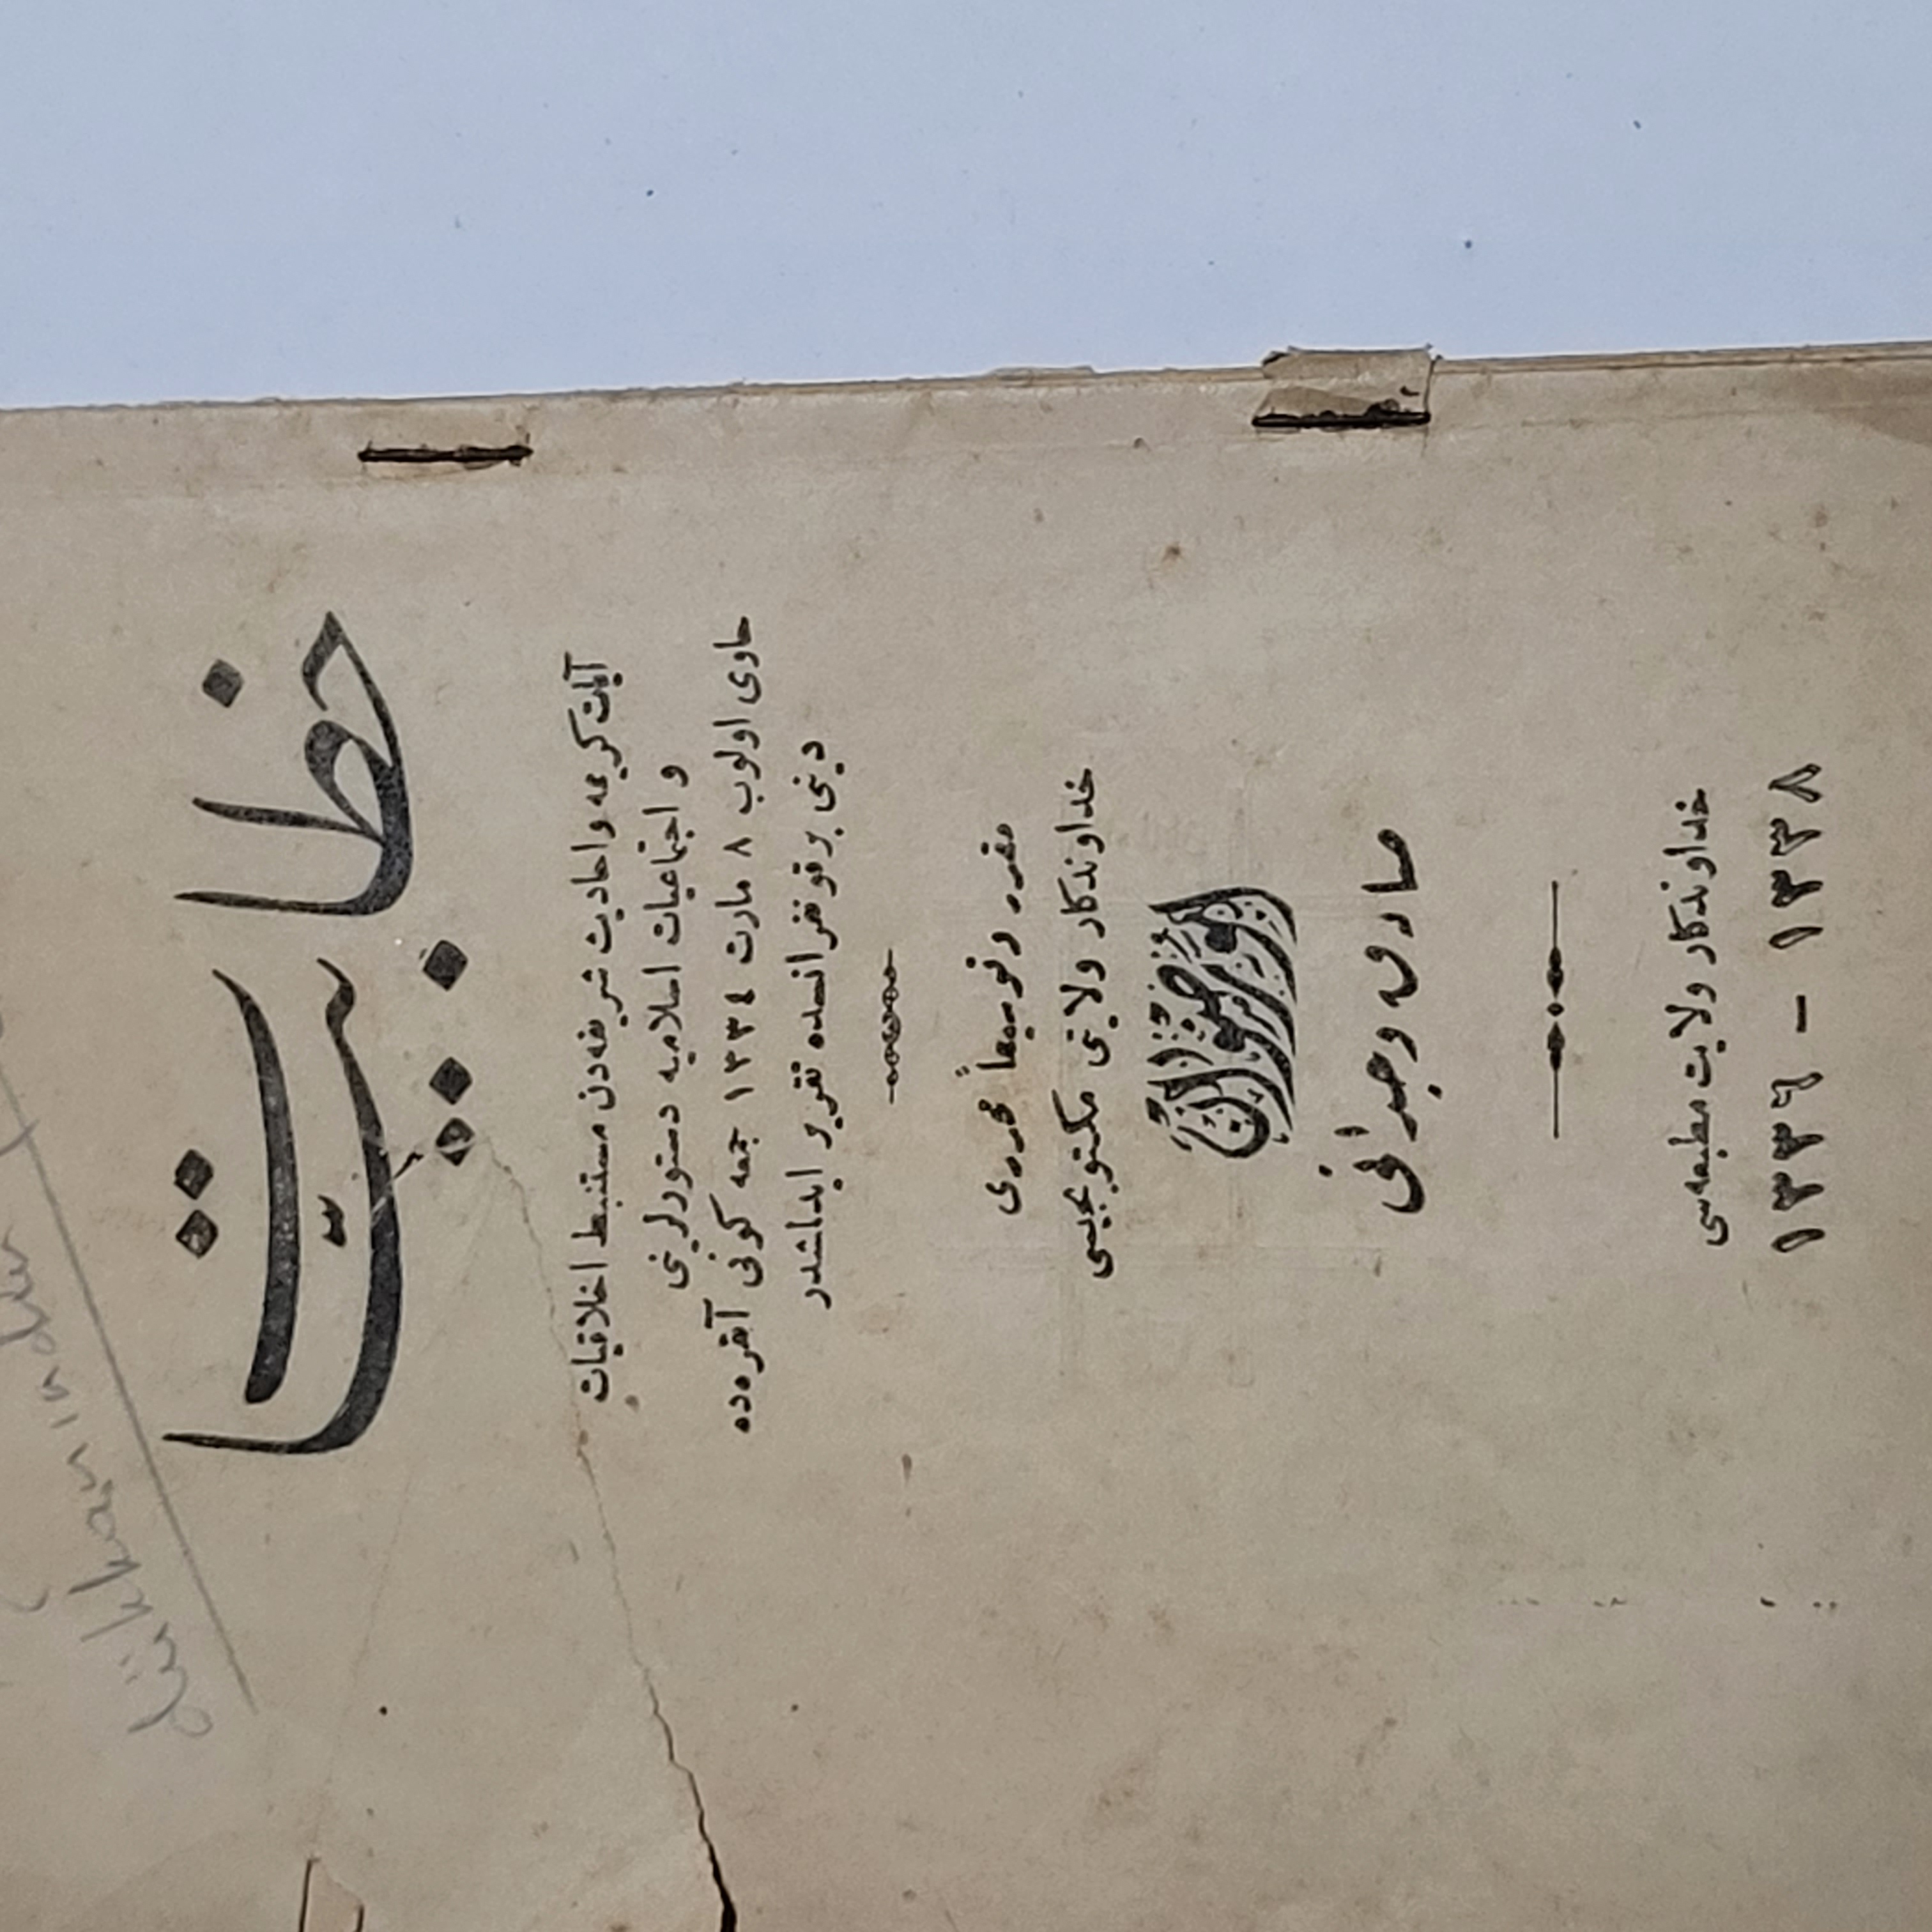 خطابیات
آیات کریمه و احادیث شریفه‌دن مستنبط اخلاقیات
و اجتماعیات اسلامیه دستورلرینی
حاوی اولوب ۸ مارت ۱۳۳٤ جمعه کونی آنقره‌ده
دینی بر قونفرانسده تقریر ایدلمشدر
مقرر و توسیعاً محرری
خداوندکار ولایتی مکتوبجیسی
صاری وجدانی
خداوندکار ولایت مطبعه‌سی
۱۳۳٦ - ۱۳۳۸
dükkanından